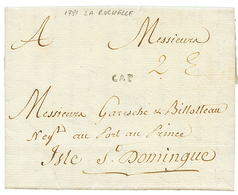 1781 LA ROCHELLE
A Messieurs
CAP
Messieurs Garesche & Billotteau
Neg.ts au Port au Prince
Isle St. Domingue